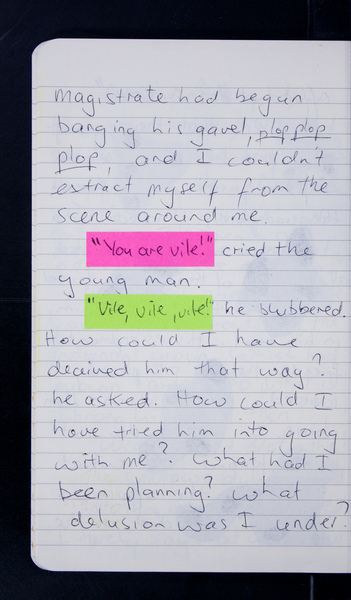 magistrate had begun
banging his gavel, plop plop
plop, and I couldn't
extract myself from the
scene around me.
"You are vile!" cried the
young man.
"Vile, vile, vile!" he blubbered.
How could I have
deceived him that way?
he asked. How could I
have tried him into going
with me? What had I
been planning? What
delusion was I under?